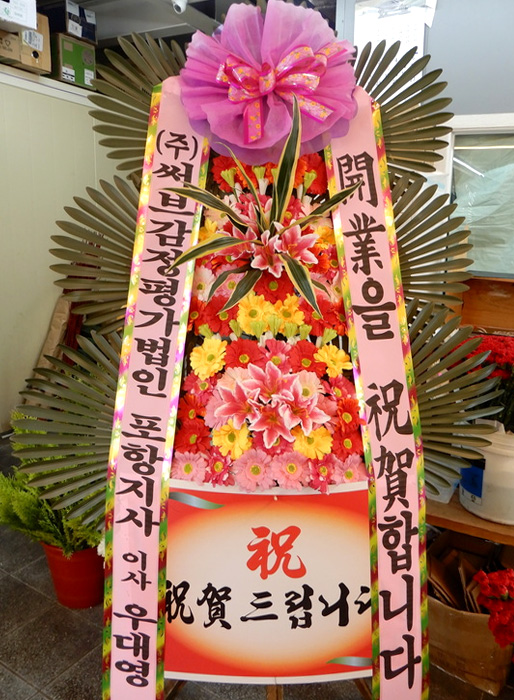 (주)써브감정평가법인 포항지사 이사 우대영
開業을 祝賀합니다
祝
祝賀드립니다